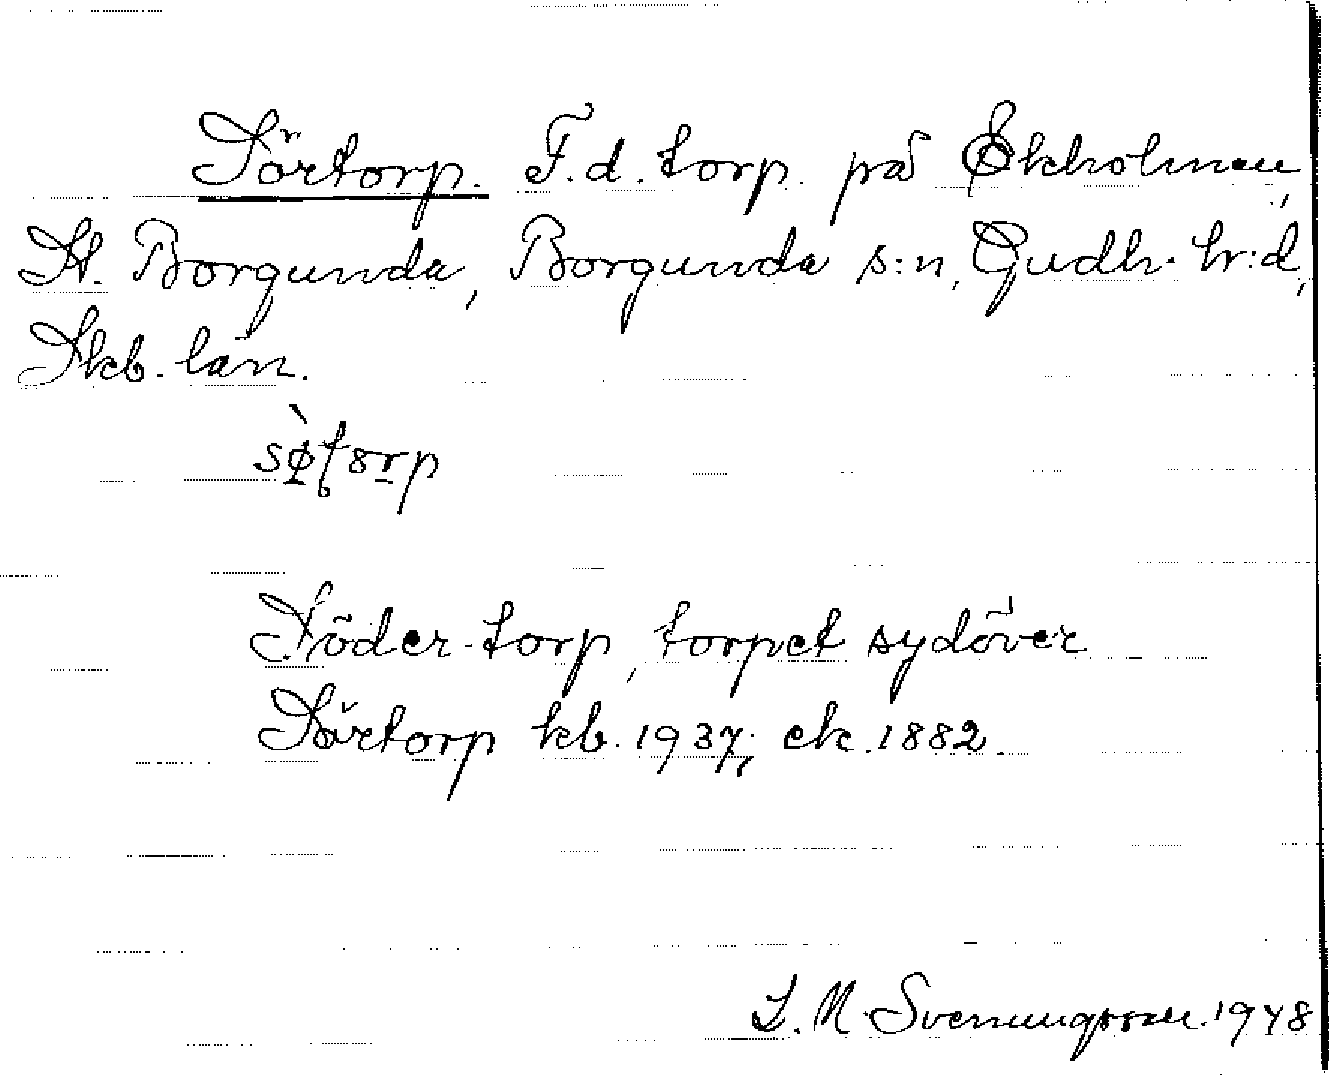 Sörtorp. F.d. torp på Ekholmen,
St. Borgunda, Borgunda s:n, Gudh. hr:d,
Skb. län.
Söder-torp, torpet sydöver
Sörtorp kb. 1937; ek. 1882.
L. M. Svenungsson 1948